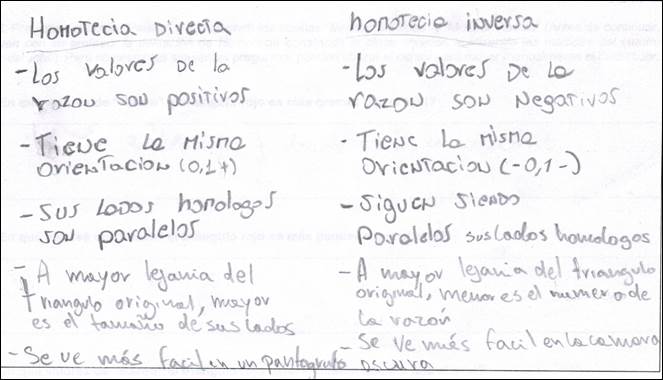 Homotecia Directa
- Los valores de la
razon son positivos
- Tiene la misma
orientacion (0,1+)
- Sus lados homologos
son paralelos
- A mayor lejania del
triangulo original, mayor
es el tamaño de sus lados
- Se ve más facil en un pantografo
homotecia inversa
- Los valores de la
razon son negativos
- Tiene la misma
orientacion (-0,1-)
- Siguen siendo
Paralelos sus lados homologos
- A mayor lejania del triangulo
original, menor es el numero de
la razón
- Se ve más facil en la camara
oscura